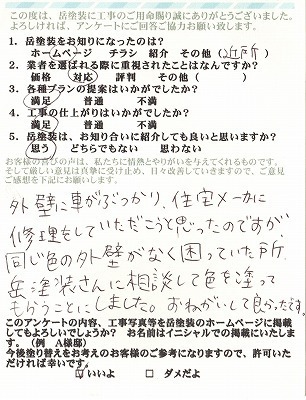 この度は、岳塗装に工事のご用命賜り誠にありがとうございました。
よろしければ、アンケートにご回答ご協力お願い致します。
1. 岳塗装をお知りになったのは?
ホームページ チラシ 紹介 その他（近所）
2. 業者を選ばれる際に重視されたことはなんですか?
価格 対応 評判 その他（ ）
3. 各種プランの提案はいかがでしたか?
満足 普通 不満
4. 工事の仕上がりはいかがでしたか?
満足 普通 不満
5. 岳塗装は、お知り合いに紹介しても良いと思いますか?
思う どちらでもない 思わない
お客様の喜びの声は、私たちに情熱とやりがいを与えてくれるものです。
そして厳しい意見は真摯に受け止め、日々改善していきますので、ご意見
ご感想を下記にお願いします。
外壁に車がぶつかり、住宅メーカに
修理をしていただこうと思ったのですが
同じ色の外壁がなく困っていた所、
岳塗装さんに相談して色を塗って
もらうことにしました。おねがいして良かったです。
このアンケートの内容、工事写真等を岳塗装のホームページに掲載
してもよろしいでしょうか? お名前はイニシャルでの掲載にいたしま
す。（例 A様邸）
今後塗り替えをお考えのお客様のご参考になりますので、許可いた
だければ幸いです。
☑いいよ □ ダメだよ